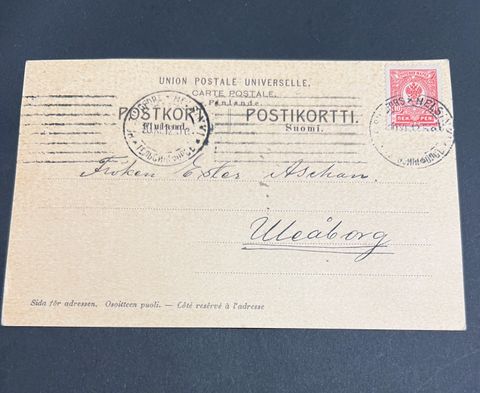 UNION POSTALE UNIVERSELLE.
CARTE POSTALE.
Finlande.
POSTKOR POSTIKORTTI.
Finland. Suomi.
Fröken Ester Aschan.
Uleåborg
Sida för adressen. Osoitteen puoli. — Côté resérvé à l'adresse
PEN. PEN.